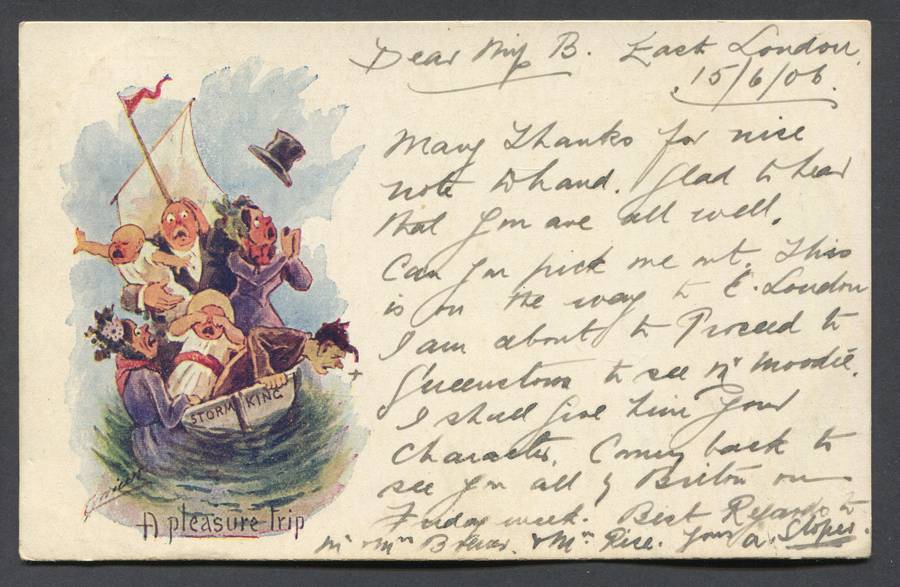 Dear Miss B. East London,
15/6/06.
Many Thanks for nice
note to hand. Glad to hear
that you are all well.
Can you pick me out. This
is on the way to E. London
I am about to Proceed to
Queenstown to see Mr Moodie.
I shall give him your
character. Coming back to
see you all by Briton on
Friday week. Best Regards to
Mr & Mrs & Mr Rice. Your A. Sloper.
STORM KING
A pleasure trip